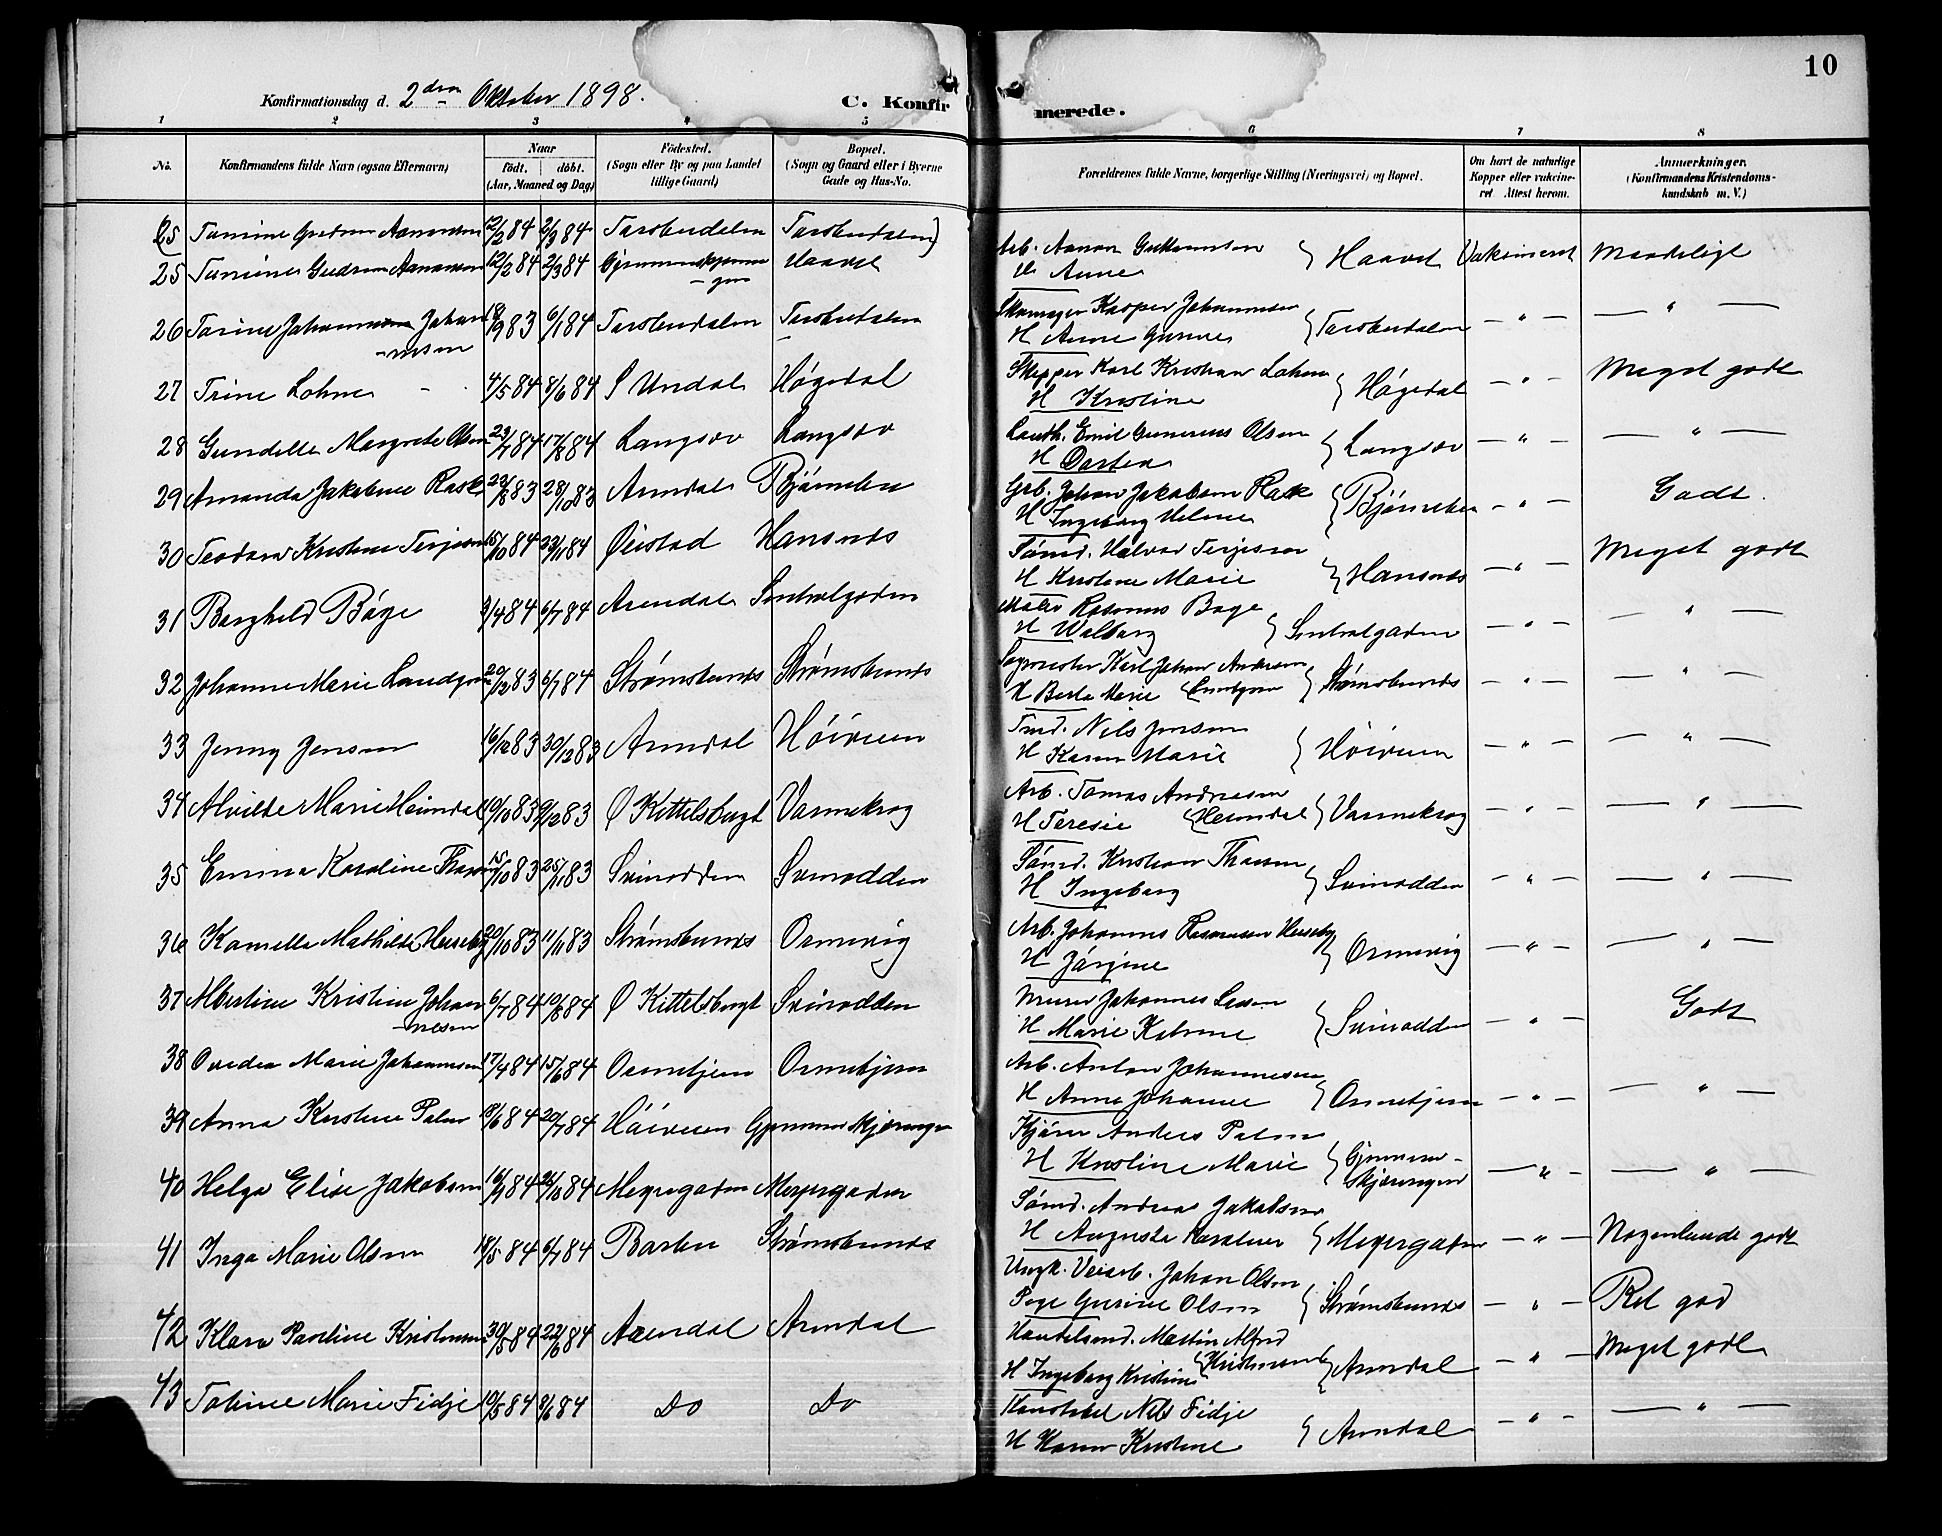 10
Konfirmationsdag d. 2den Oktober 1898.
C. Konfirmerede.
1 2 3 4 5 6 7 8
No. Konfirmandens fulde Navn (ogsaa Efternavn) Naar født. døbt. (Aar, Maaned og Dag) Fødested. (Sogn eller By og paa Landet tillige Gaard) Bopæl. (Sogn og Gaard eller i Byerne Gade og Hus-No. Forældrenes fulde Navne, borgerlige Stilling (Næringsvei) og Bopæl. Om havt de naturlige Kopper eller vakcineret Attest herom. Anmærkninger. (Konfirmandens Kristendomskundskab m. V.)
25 Tomine Gudrun Aanonsen 12/2 84 2/3 84 Tarsbudalen Tarsbudalen)
25 Tomine Gudrun Aanonsen 12/2 84 2/3 84 Haavet Arb. Aanon
H. Anne } Haavet Vakcineret Maadeligt
26 Johannesen 6/1 84 Skomager Kasper Johannesen
H Anne — " — — " —
27 Trine Lohne 4/5 84 8/6 84 S Undal Høgedal Skipper Karl Kristian Lohne
H Kristine } Høgedal — " — Meget godt
28 Gundelle Margrete Olsen 17/8 84 Langsæv Langsæv Emil Gunerius Olsen
H Dortea } Langsæv — " — — " —
29 Amanda Jakobine Rask 28/10 83 Arendal Bjørnebo Johan Jakobsen Rask
H Ingeborg Helene } Bjørnebo — " — Godt.
30 Teodora Kristine Terjesen 15/10 84 23/11 84 Øiestad Hansnæs Sømd. Halvor Terjesen
H Kristine Marie } Hansnæs — " — Meget godt
31 Borghild Bøge 3/4 84 6/7 84 Arendal Sentralgaden Maler Rasmus Bøge
H Walborg } Sentralgaden — " — — " —
32 Johanne Marie Lundgren 20/12 83 6/1 84 Strømsbunæs Strømsbunæs Karl Johan Andersen
H Berte Marie Lundgren } Strømsbunæs — " — — " —
33 Jenny Jensen 16/12 83 30/12 83 Arendal Høiveien Tmd. Nils Jensen
H Karen Marie } Høiveien — " — — " —
34 Alvilde Marie Heimdal 10/10 83 9/12 83 Ø Kittelsbugt Varmekrog Arb. Tomas Andreasen
H Teresie Heimdal } Varmekrog — " — — " —
35 Emma Karoline Thorsen 15/10 83 25/11 83 Svinodden Svinodden Sømd. Kristian Thorsen
H Ingeborg } Svinodden — " — — " —
36 Kamilla Mathilde Heseby 20/10 83 11/11 83 Strømsbunæs Ormevig Arb. Johannes Rasmussen Heseby
H Jørgine } Ormevig — " — — " —
37 Albertine Kristine Johannesen 6/7 84 10/8 84 Ø Kittelsbugt Svinodden Murer Johannes
H Marie Katrine } Svinodden — " — Godt
38 Ovedia Marie Johannesen 17/4 84 15/6 84 Ormetjern Ormetjern Arb. Anton Johannesen
H Anne Johanne } Ormetjern — " — — " —
39 Anna Kristine Palm 18/6 84 20/7 84 Høiveien Gjennemskjæringen Kjører Anders Palm
H Kristine Marie } Gjennemskjæringen — " — — " —
40 Helga Elise Jakobsen 16/9 84 26/10 84 Meyergaden Meyergaden Sømd. Andreas Jakobsen
H Augusta Karoline } Meyergaden — " — Nogenlunde godt
41 Inga Marie Olsen 18/5 84 6/7 84 Barbu Strømsbunæs Ungk. Veiarb. Johan Olsen
Pige Gurine Olsen } Strømsbunæs — " — Ret god
42 Klara Pauline Kristensen 30/5 84 22/6 84 Arendal Arendal Handelsmd. Martin Alfred
H Ingeborg Kristine Kristensen } Arendal — " — Meget godt
43 Tobine Marie Fidje 10/5 84 8/6 84 Do Do Konstabel Nils Fidje
H Karen Kristine } Arendal — " — — " —